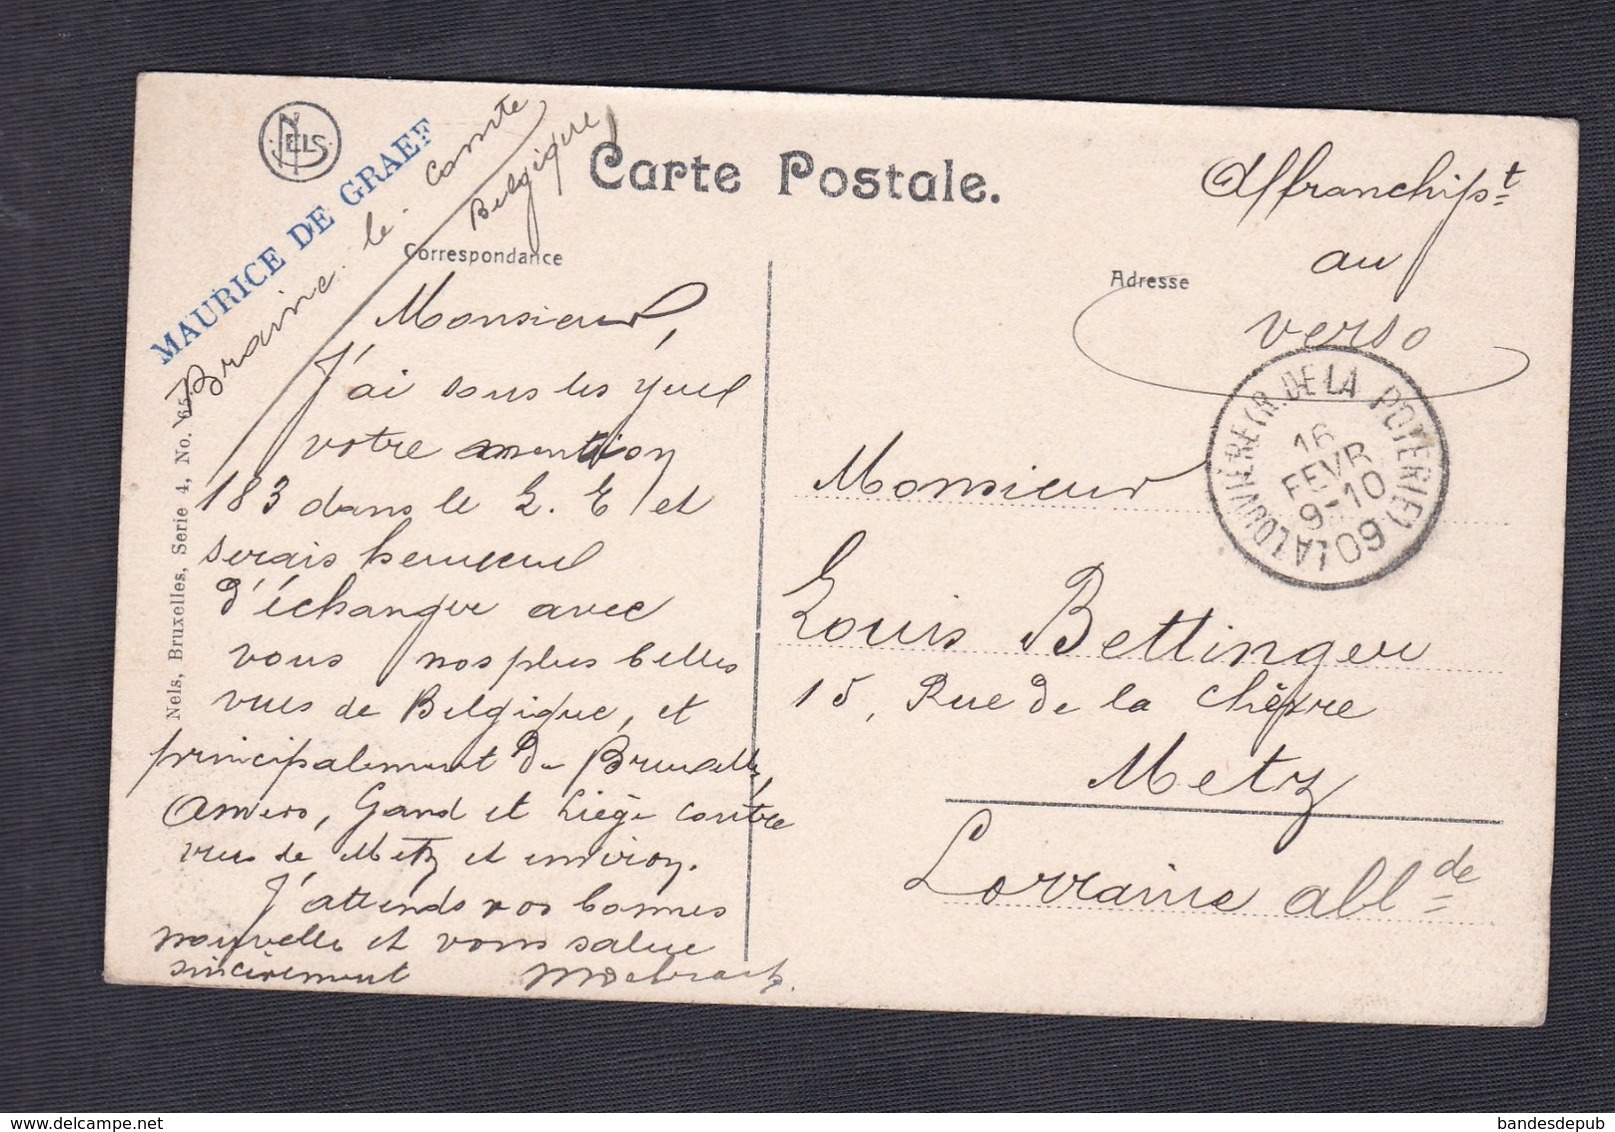 NELS
MAURICE DE GRAEF
Braine le Comte
Belgique
Carte Postale.
Correspondance
Adresse
Affranchisst
au
verso
LA LOUVIÈRE (R. DE LA POTERIE)
16
FEVR
9-10
09
Monsieur,
J'ai sous les yeux
votre mention
183 dans le L. E et
serais heureux
d'échanger avec
vous nos plus belles
vues de Belgique, et
principalement de Bruxelles,
Anvers, Gand et Liège contre
vues de Metz et environ.
J'attends vos bonnes
nouvelles et vous salue
sincèrement
Monsieur
Louis Bettinger
15, Rue de la Chèvre
Metz
Lorraine allde
Nels, Bruxelles, Serie 4, No. 65
www.delcampe.net
bandesdepub